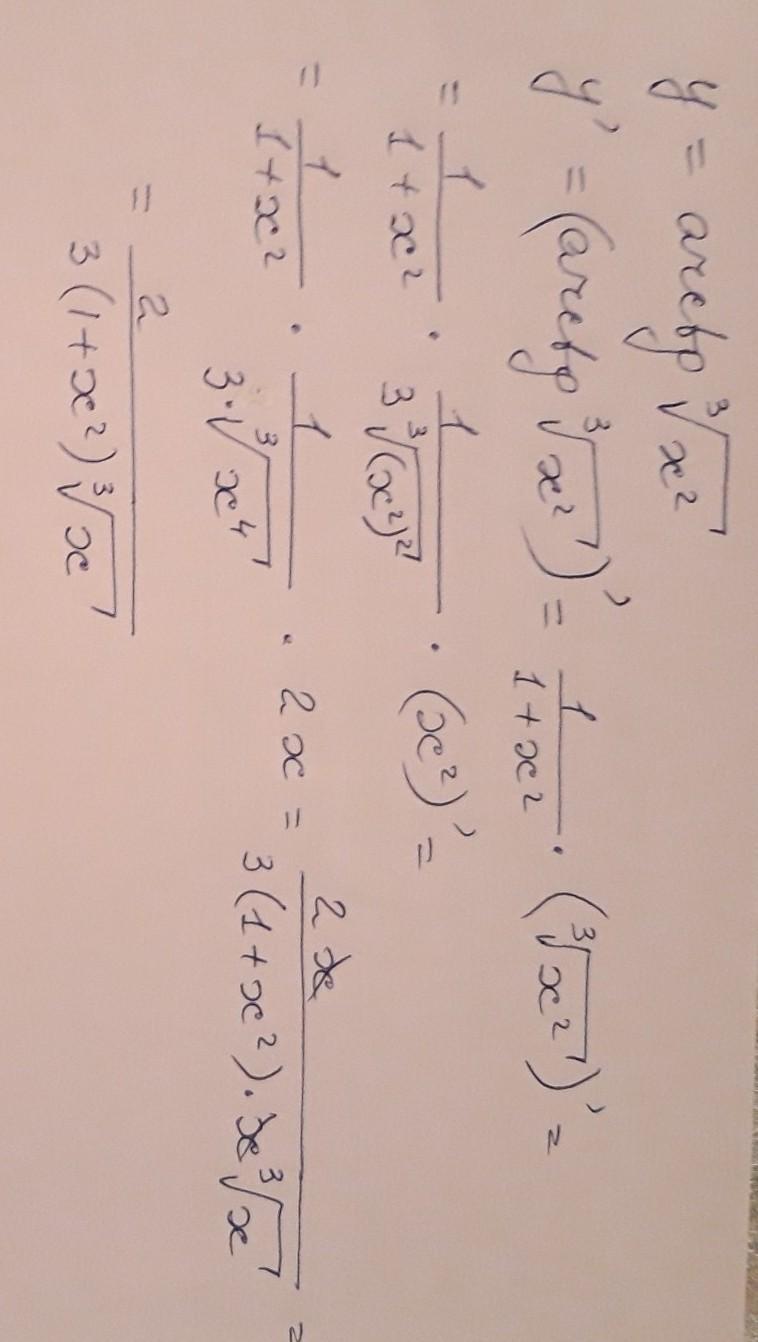 y = arctg ∛x²
y' = (arctg ∛x²)' = 1/(1+x²) · (∛x²)' =
= 1/(1+x²) · 1/(3∛(x²)²) · (x²)' =
= 1/(1+x²) · 1/(3·∛x⁴) · 2x = 2x/(3(1+x²)·x∛x) =
= 2/(3(1+x²)∛x)